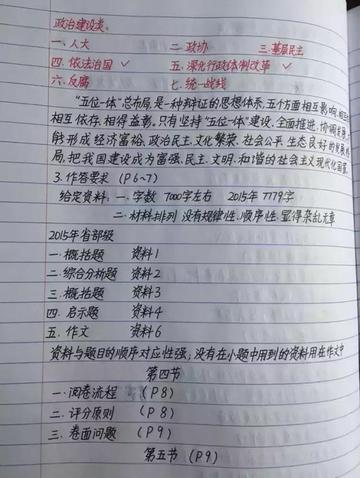 政治建设类:
一、人大 二、政协 三、基层民主
四、依法治国 ✓ 五、深化行政体制改革 ✓
六、反腐 七、统一战线
"五位一体"总布局,是一种辩证的思想体系,五个方面相互影响,相互
相互依存,相得益彰,只有坚持"五位一体"建设,全面推进,协调发展,
能形成经济富裕,政治民主,文化繁荣,社会公平,生态良好的发展
局,把我国建设成为富强、民主、文明、和谐的社会主义现代化国家
3.作答要求(P6~7)
给定资料:一、字数 7000字左右 2015年 7779字
二、材料排列 没有规律性、顺序性,显得杂乱无章
2015年省部级
一、概括题 资料1
二、综合分析题 资料2
三、概括题 资料3
四、启示题 资料4
五、作文 资料6
资料与题目的顺序对应性强,没有在小题中用到的资料用在作文中
第四节
一、阅卷流程 (P8)
二、评分原则 (P8)
三、卷面问题 (P9)
第五节(P9)